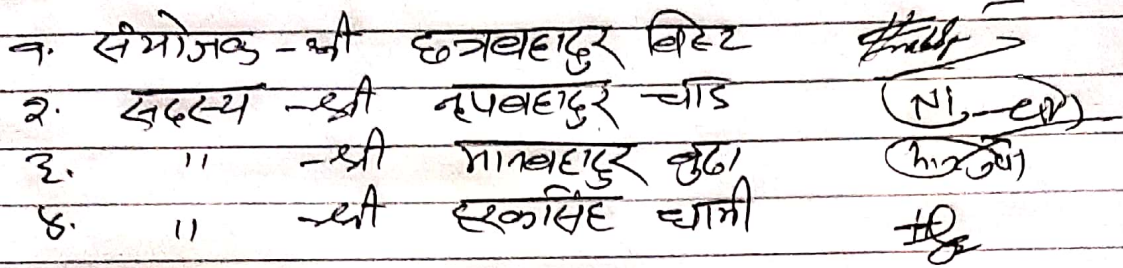 १. संयोजक - श्री छत्रबहादुर बिष्ट
२. सदस्य - श्री नृपबहादुर चाड
३. " - श्री मानबहादुर बुढा
४. " - श्री हरकसिंह धामी